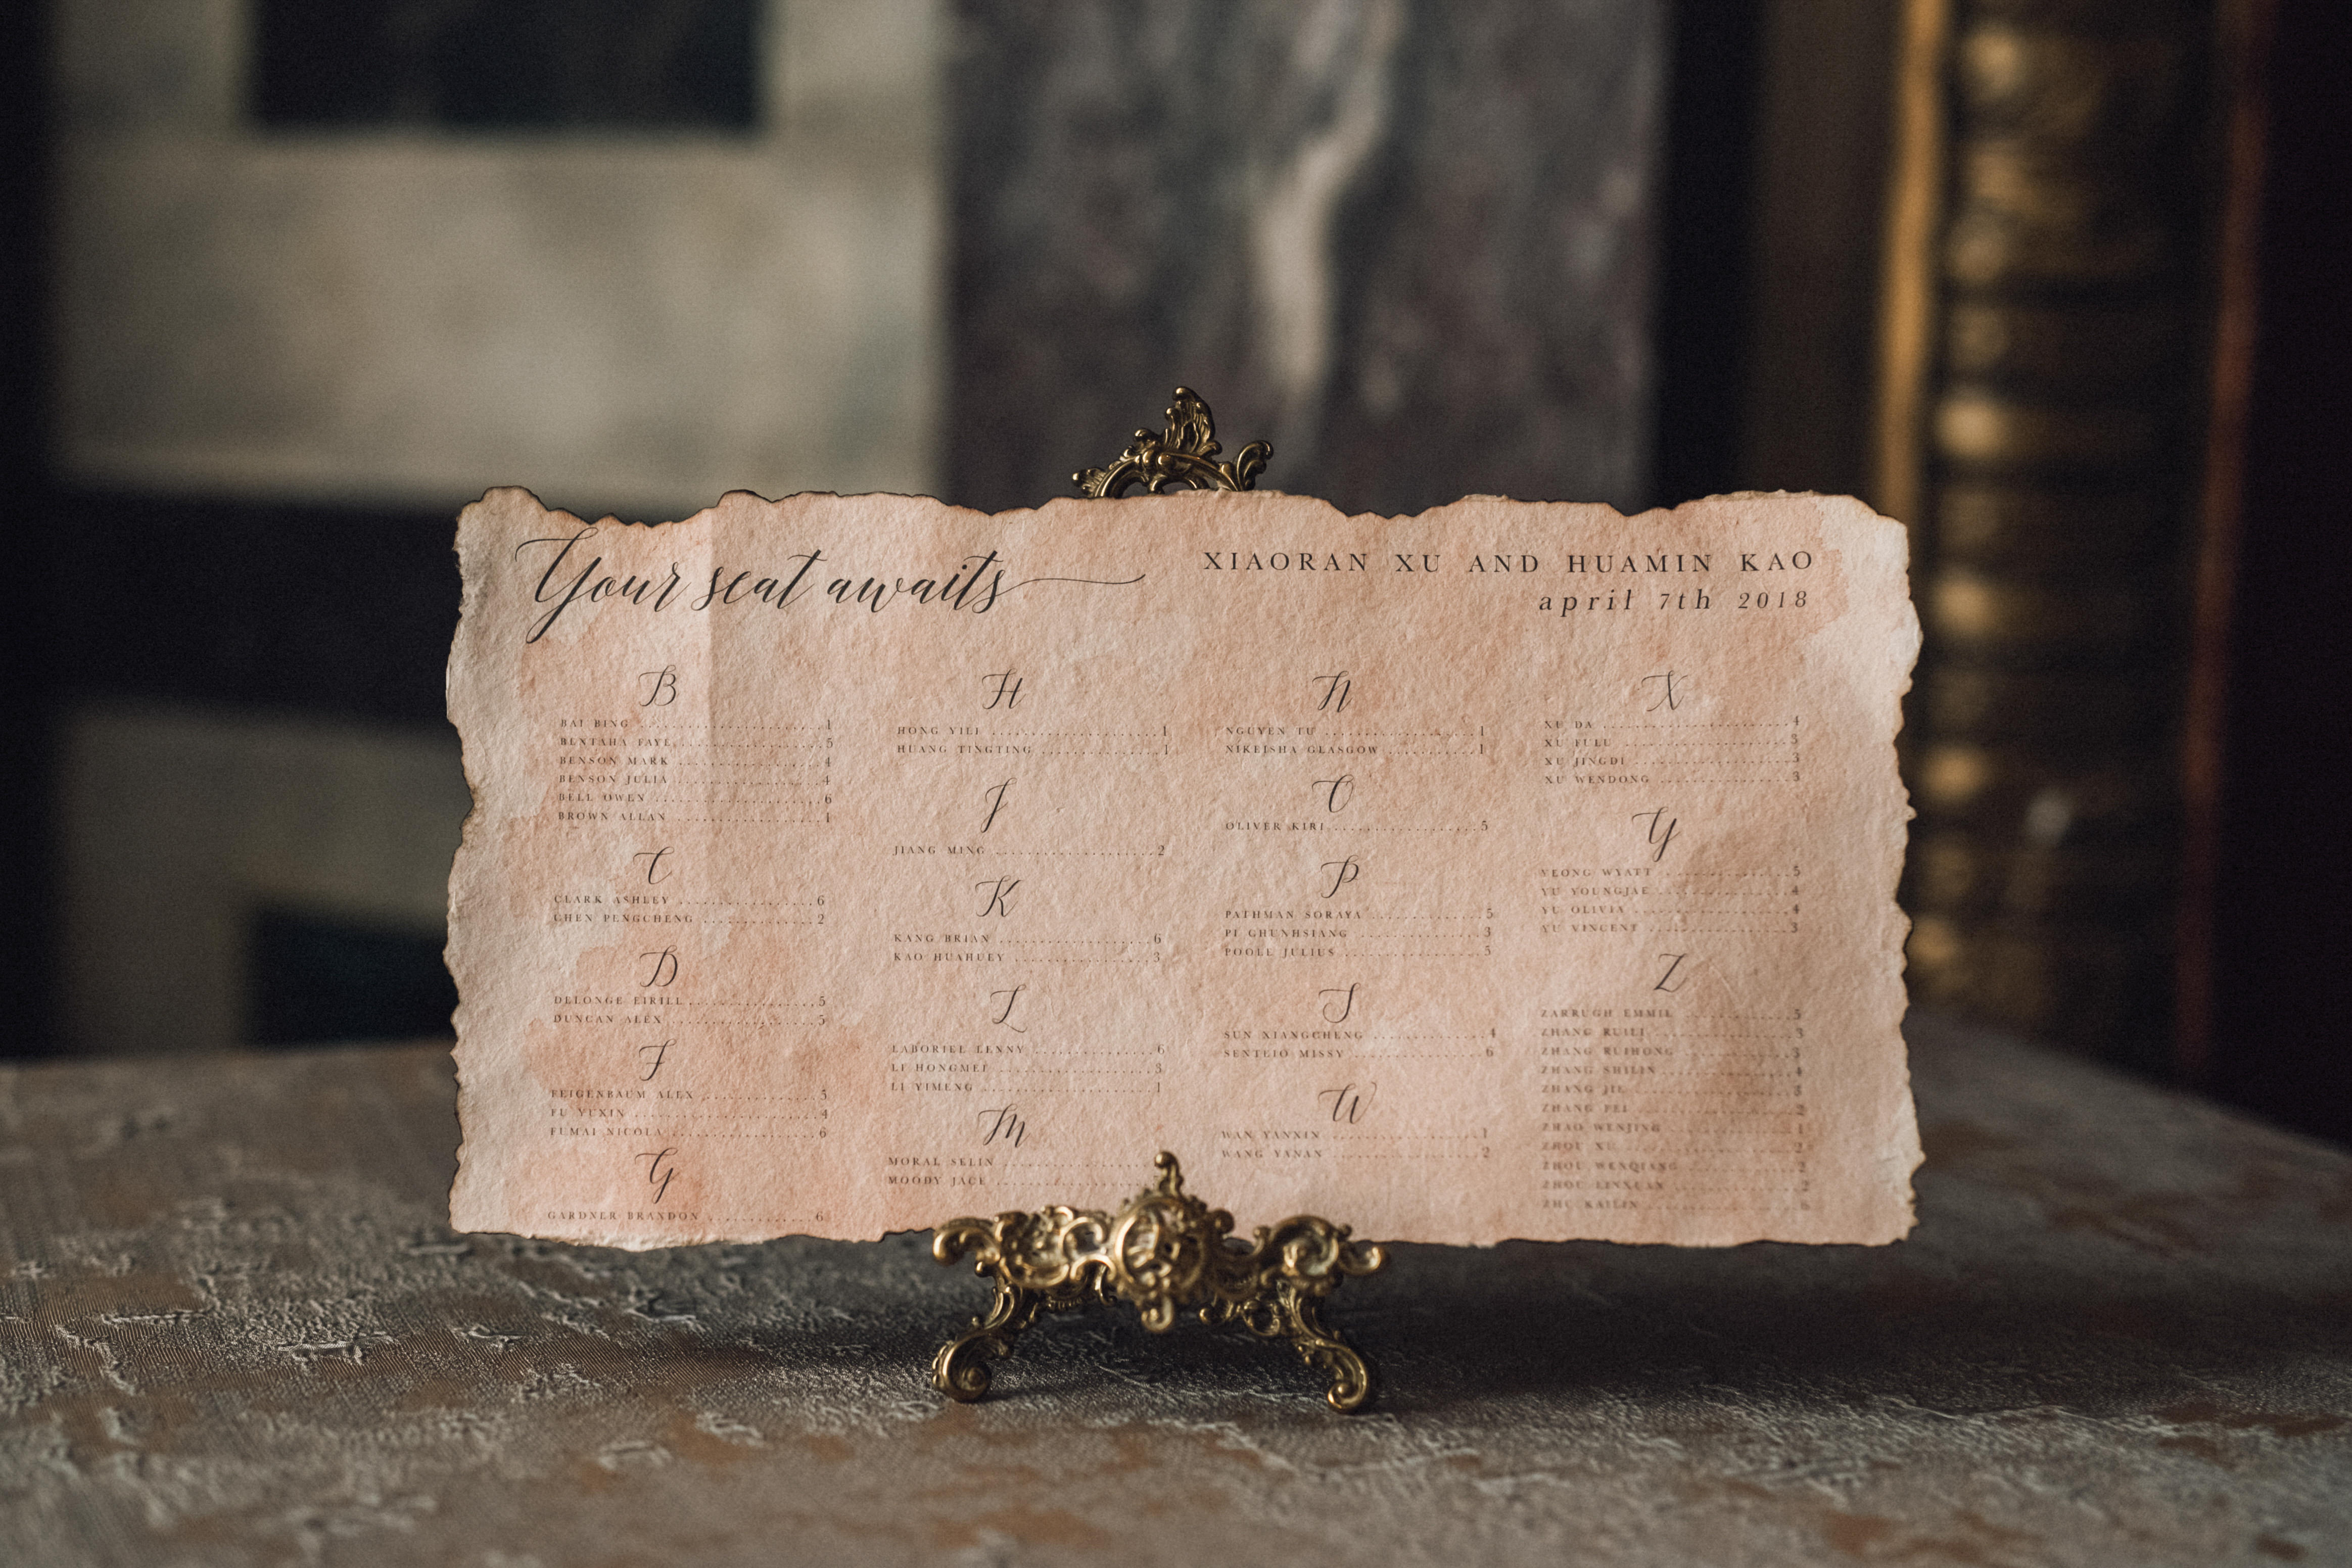 Your seat awaits
XIAORAN XU AND HUAMIN KAO
april 7th 2018
B
BAI BING 1
BENTAHA FAYE 5
BENSON MARK 4
BENSON JULIA 4
BELL OWEN 6
BROWN ALLAN 1
C
CLARK ASHLEY 6
CHEN PENGCHENG 2
D
DELONGE EIRILL 5
DUNCAN ALEX 5
F
FEIGENBAUM ALEX 5
FU YUXIN 4
FUMAI NICOLA 6
G
GARDNER BRANDON 6
H
HONG YILI 1
HUANG TINGTING 1
J
JIANG MING 2
K
KANG BRIAN 6
KAO HUAHUEY 3
L
LABORIEL LENNY 6
LI HONGMEI 3
LI YIMENG 1
M
MORAL SELIN
MOODY JACE
N
NGUYEN TU 1
NIKEISHA GLASGOW 1
O
OLIVER KIRI 5
P
PATHMAN SORAYA 5
PI CHUNHSIANG 3
POOLE JULIUS 5
S
SUN XIANGCHENG 4
SENTEIO MISSY 6
W
WAN YANXIN 1
WANG YANAN 2
X
XU DA 4
XU FULU 3
XU JINGDI 3
XU WENDONG 3
Y
YEONG WYATT 5
YU YOUNGJAE 4
YU OLIVIA 4
YU VINCENT 3
Z
ZARRUGH EMMIL 5
ZHANG RUILI 3
ZHANG RUIHONG 3
ZHANG SHILIN 4
ZHANG JIE 3
ZHANG FEI 2
ZHAO WENJING 1
ZHOU XU 2
ZHOU WENQIANG 2
ZHOU LINXUAN 2
ZHU KAILIN 6